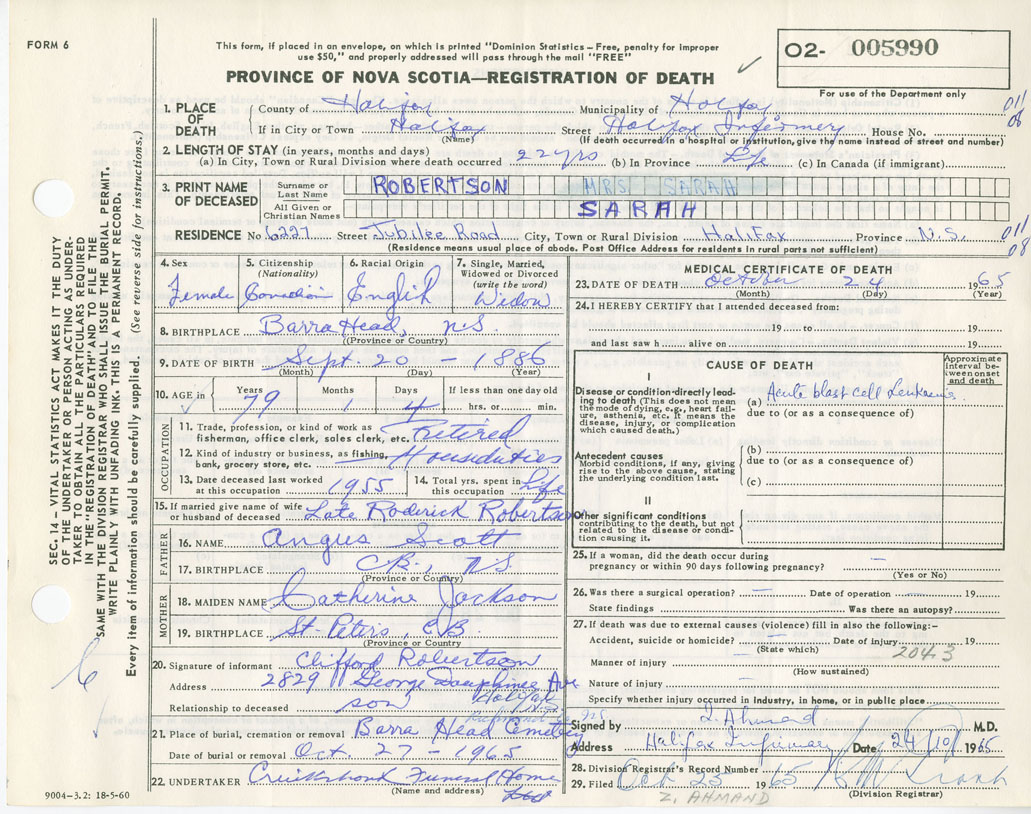 FORM 6
This form, if placed in an envelope, on which is printed "Dominion Statistics – Free, penalty for improper
use $50," and properly addressed will pass through the mail "FREE"
PROVINCE OF NOVA SCOTIA—REGISTRATION OF DEATH
O2- 005990
For use of the Department only
1. PLACE OF DEATH
County of Halifax Municipality of Halifax 011
If in City or Town Halifax Street Halifax Infirmery House No. 08
(Name) (If death occurred in a hospital or institution, give the name instead of street and number)
2. LENGTH OF STAY (in years, months and days)
(a) In City, Town or Rural Division where death occurred 22 yrs (b) In Province Life (c) In Canada (if immigrant)
3. PRINT NAME OF DECEASED
Surname or Last Name ROBERTSON MRS SARAH
All Given or Christian Names SARAH
RESIDENCE No 6227 Street Jubilee Road City, Town or Rural Division Halifax Province N.S. 011
08
(Residence means usual place of abode. Post Office Address for residents in rural parts not sufficient)
4. Sex Female
5. Citizenship (Nationality) Canadian
6. Racial Origin English
7. Single, Married, Widowed or Divorced (write the word) Widow
8. BIRTHPLACE Barra Head, N.S.
(Province or Country)
9. DATE OF BIRTH Sept. 20 – 1886
(Month) (Day) (Year)
10. AGE in Years 79 Months 1 Days 4 If less than one day old hrs. or min.
OCCUPATION
11. Trade, profession, or kind of work as fisherman, office clerk, sales clerk, etc. Retired
12. Kind of industry or business, as fishing, bank, grocery store, etc. Houseduties
13. Date deceased last worked at this occupation 1955
14. Total yrs. spent in this occupation Life
15. If married give name of wife or husband of deceased Late Roderick Robertson
FATHER
16. NAME Angus Scott
17. BIRTHPLACE C.B., N.S.
(Province or Country)
MOTHER
18. MAIDEN NAME Catherine Jackson
19. BIRTHPLACE St. Peters, C.B.
(Province or Country)
20. Signature of informant Clifford Robertson
Address 2829 George Dauphinee Ave
Halifax
N.S.
Relationship to deceased son
21. Place of burial, cremation or removal Barra Head Cemetery
Date of burial or removal Oct. 27 – 1965
22. UNDERTAKER Cruikshank Funeral Home
(Name and address) Ltd
9004–3.2: 18-5-60
MEDICAL CERTIFICATE OF DEATH
23. DATE OF DEATH October 24 1965
(Month) (Day) (Year)
24. I HEREBY CERTIFY that I attended deceased from:
19 to 19
and last saw h alive on 19
CAUSE OF DEATH
Approximate Interval between onset and death
I
Disease or condition directly leading to death (This does not mean the mode of dying, e.g., heart failure, asthenia, etc. It means the disease, injury, or complication which caused death.)
(a) Acute blast cell Leukaemia
due to (or as a consequence of)
Antecedent causes
Morbid conditions, if any, giving rise to the above cause, stating the underlying condition last.
(b)
due to (or as a consequence of)
(c)
II
Other significant conditions contributing to the death, but not related to the disease or condition causing it.
25. If a woman, did the death occur during
pregnancy or within 90 days following pregnancy? –
(Yes or No)
26. Was there a surgical operation? – Date of operation – 19
State findings Was there an autopsy?
27. If death was due to external causes (violence) fill in also the following:–
Accident, suicide or homicide? – Date of injury 19
(State which) 2043
Manner of injury –
(How sustained)
Nature of injury –
Specify whether injury occurred in industry, in home, or in public place
Signed by Z. Ahmad M.D.
Address Halifax Infirmary Date 24/10/1965
28. Division Registrar's Record Number
29. Filed Oct 25 1965
(Division Registrar)
Z. AHMAND
SEC. 14 – VITAL STATISTICS ACT MAKES IT THE DUTY
OF THE UNDERTAKER OR PERSON ACTING AS UNDER-
TAKER TO OBTAIN ALL THE PARTICULARS REQUIRED
IN THE "REGISTRATION OF DEATH" AND TO FILE THE
SAME WITH THE DIVISION REGISTRAR WHO SHALL ISSUE THE BURIAL PERMIT.
WRITE PLAINLY WITH UNFADING INK. THIS IS A PERMANENT RECORD.
Every item of information should be carefully supplied. (See reverse side for instructions.)
6